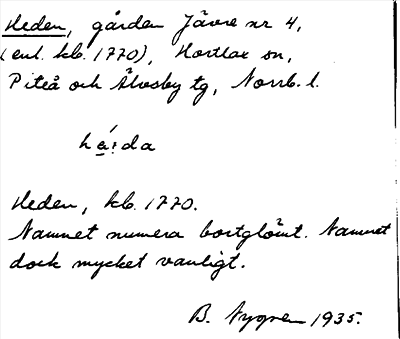 Heden, gården Jävre nr 4,
(enl. kb. 1770), Hortlax sn,
Piteå och Älvsby tg, Norrb. l.
há:da
Heden, kb. 1770.
Namnet numera bortglömt. Namnet
dock mycket vanligt.
B. Nygren 1935.